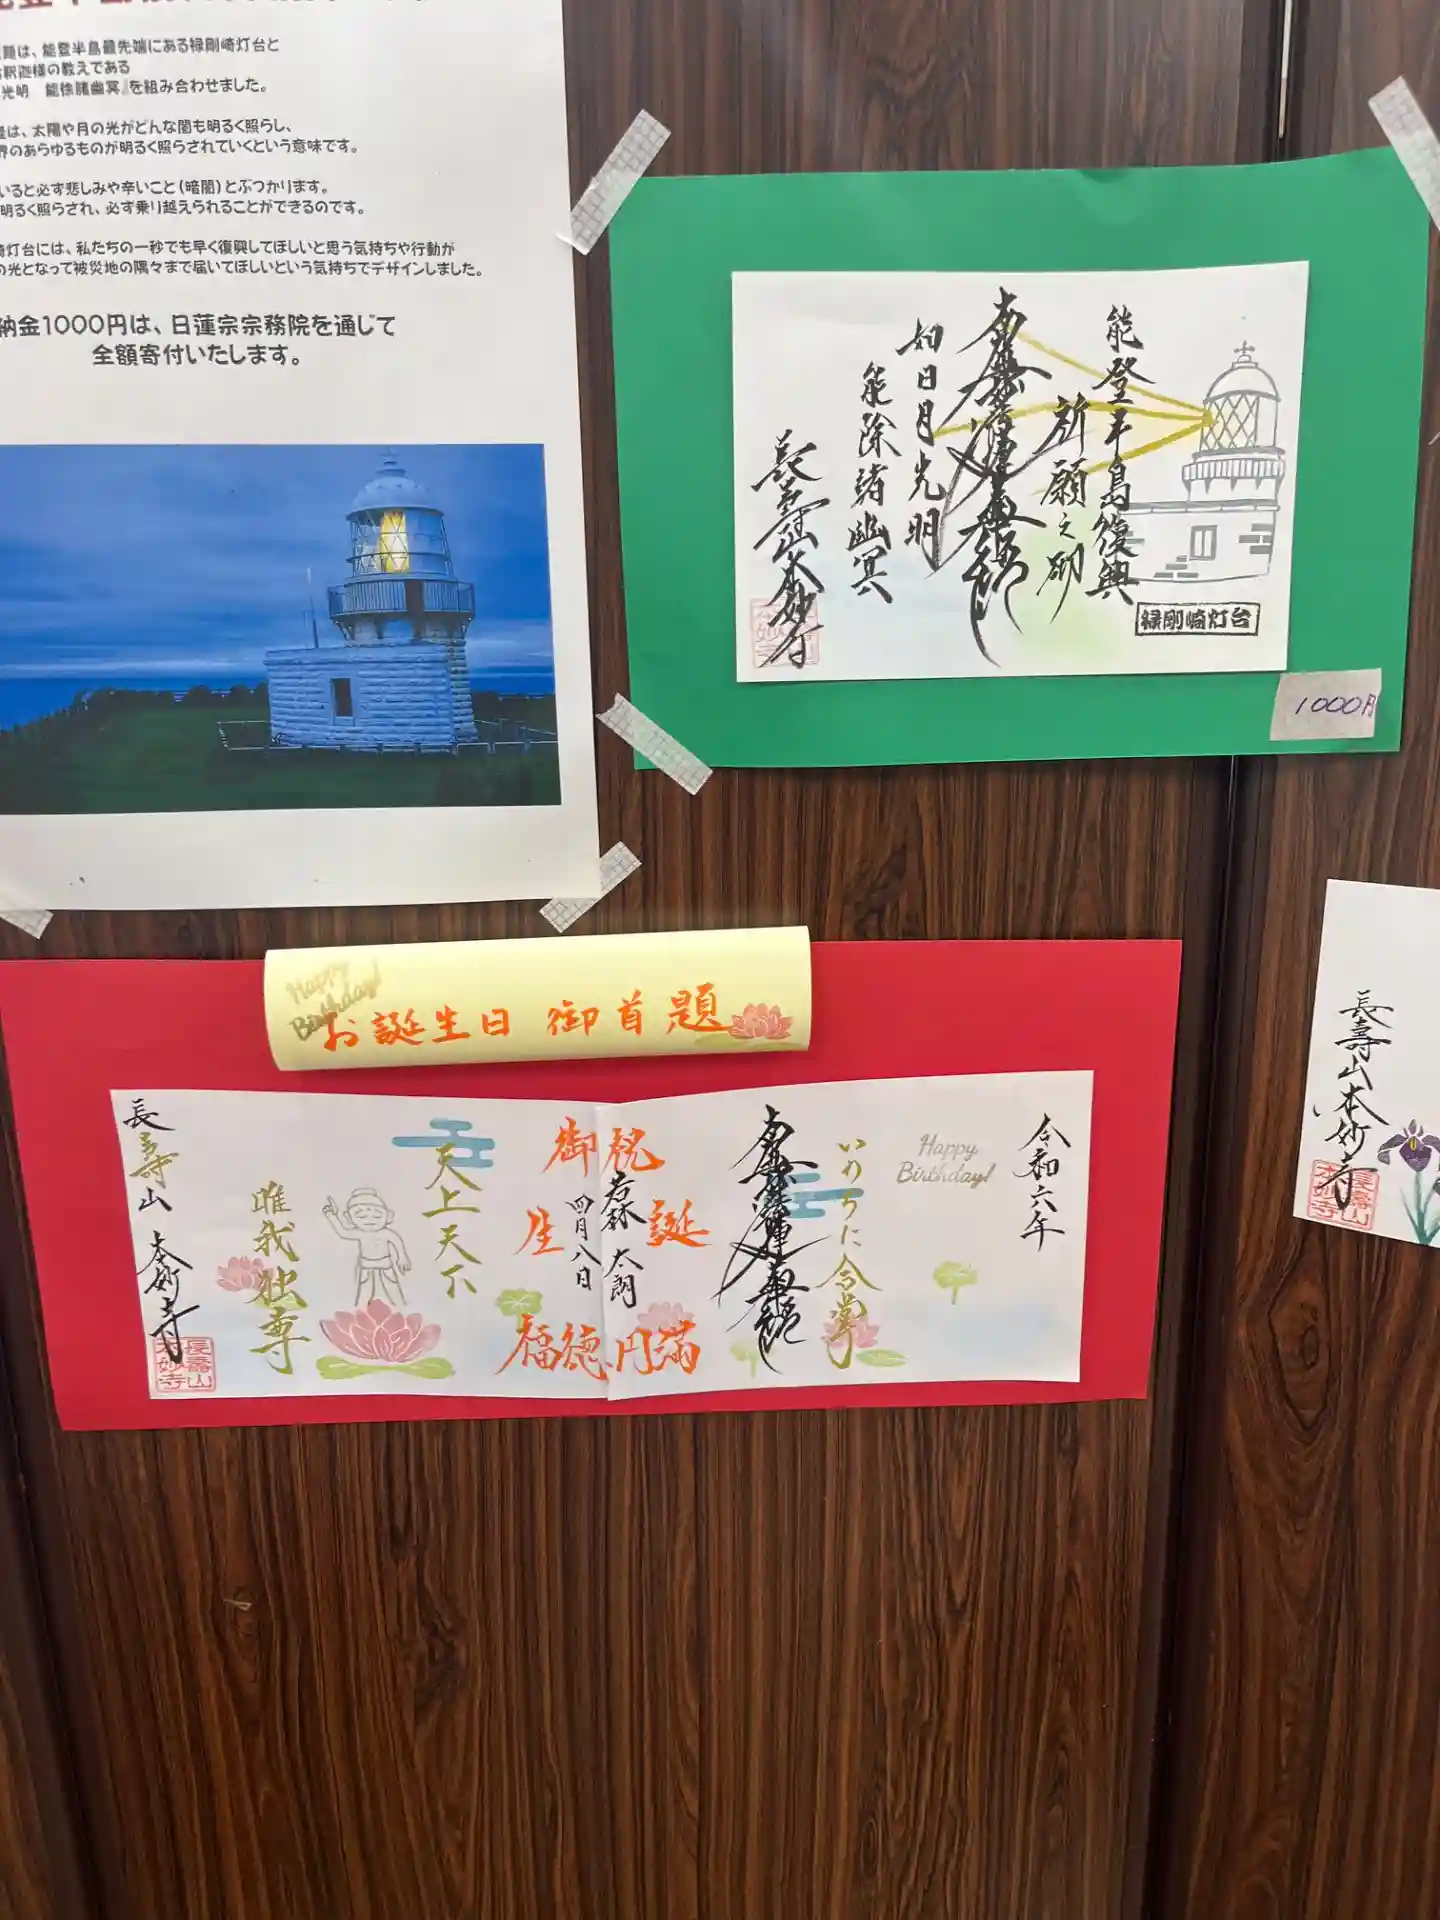 題は、能登半島最先端にある禄剛崎灯台と
釈迦様の教えである
光明　能除諸幽冥』を組み合わせました。
は、太陽や月の光がどんな闇も明るく照らし、
界のあらゆるものが明るく照らされていくという意味です。
いると必ず悲しみや辛いこと(暗闇)とぶつかります。
明るく照らされ、必ず乗り越えられることができるのです。
崎灯台には、私たちの一秒でも早く復興してほしいと思う気持ちや行動が
の光となって被災地の隅々まで届いてほしいという気持ちでデザインしました。
納金1000円は、日蓮宗宗務院を通じて
全額寄付いたします。
能登半島復興
祈願之砌
南無妙法蓮華経
如日月光明
能除諸幽冥
長壽山本妙寺
禄剛崎灯台
1000円
Happy
Birthday!
お誕生日 御首題
令和六年
Happy
Birthday!
いのちに合掌
南無妙法蓮華経
祝誕
御生
若林 太朗
四月八日
福徳円満
天上天下
唯我独尊
長壽山 本妙寺
長壽山
本妙寺
長壽山本妙寺
長壽山
本妙寺